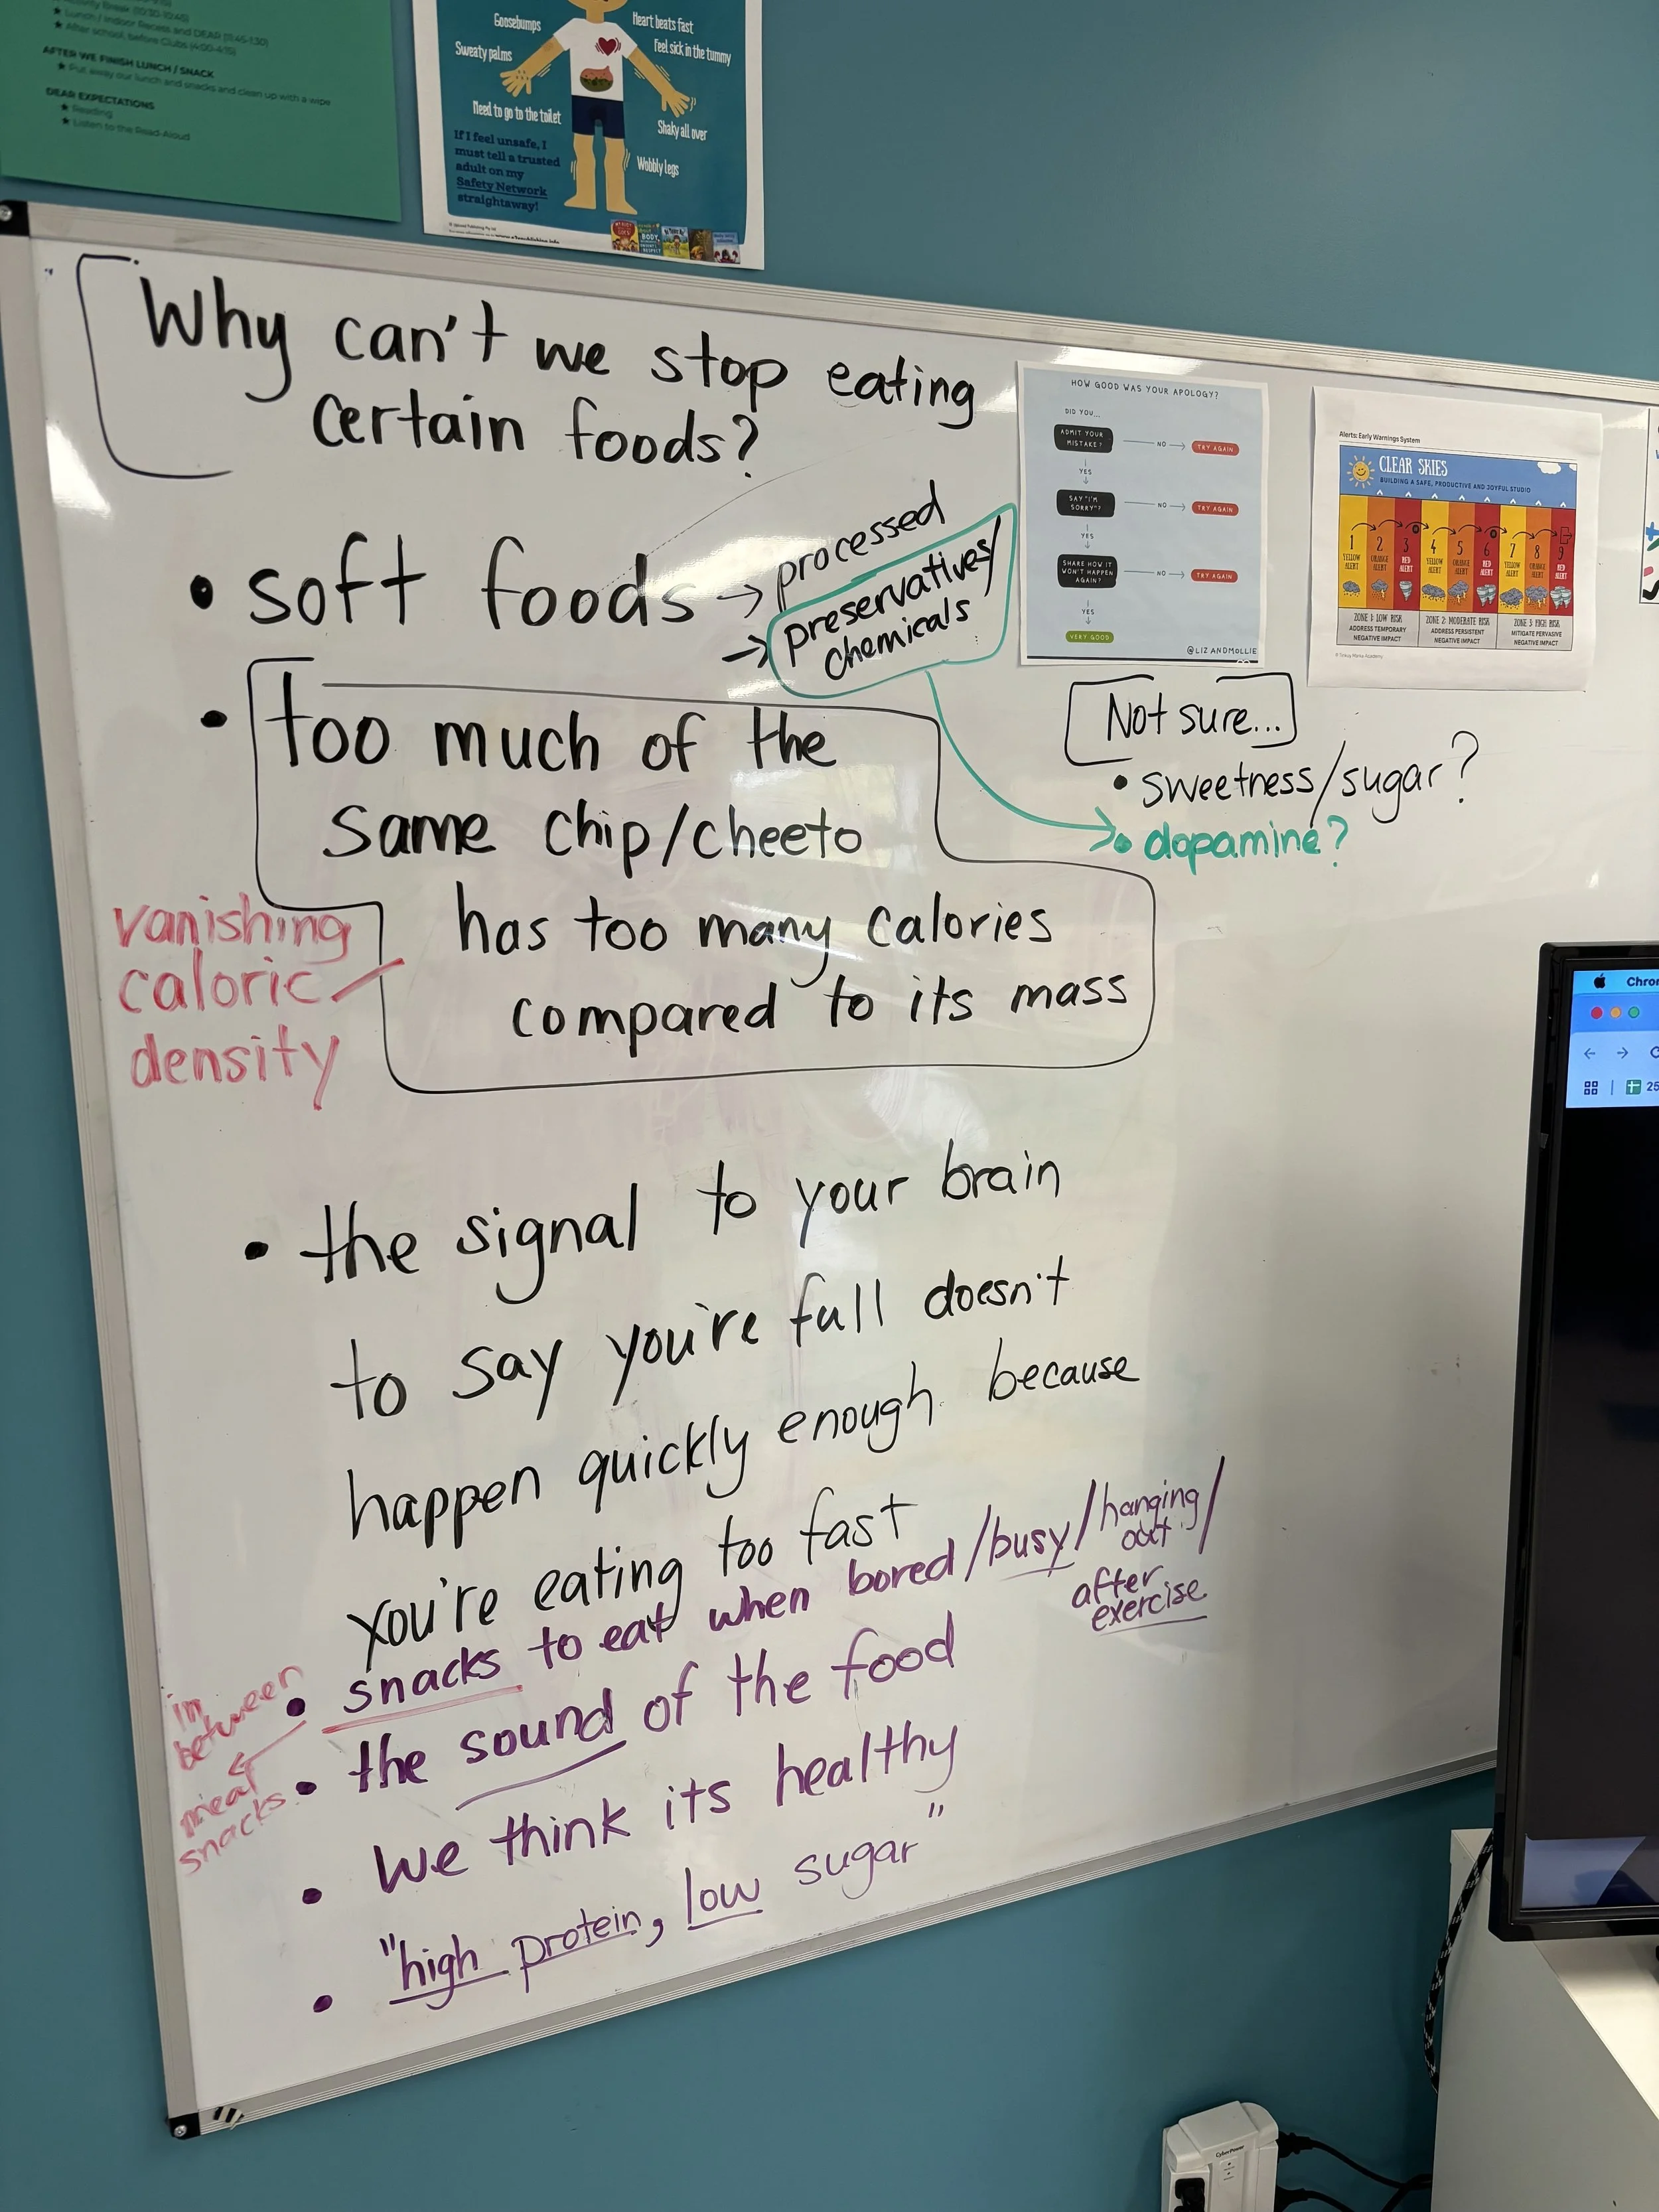 Activity Break (10:30-10:45)
★ Lunch / Indoor Recess and DEAR (11:45-1:30)
★ After school, before Clubs (4:00-4:15)
AFTER WE FINISH LUNCH / SNACK
★ Put away our lunch and snacks and clean up with a wipe
DEAR EXPECTATIONS
★ Reading
★ Listen to the Read-Aloud
Goosebumps
Sweaty palms
Need to go to the toilet
Heart beats fast
Feel sick in the tummy
Shaky all over
Wobbly legs
If I feel unsafe, I
must tell a trusted
adult on my
Safety Network
straightaway!
Why can't we stop eating
certain foods?
• soft foods → processed
→ preservatives/
chemicals
• too much of the
same chip/cheeto
has too many calories
compared to its mass
vanishing
caloric
density
Not sure...
• sweetness/sugar?
• dopamine?
• the signal to your brain
to say you're full doesn't
happen quickly enough because
you're eating too fast
• snacks to eat when bored/busy/hanging
out/
after
exercise
in
between
meal
snacks
• the sound of the food
• we think its healthy
• "high protein, low sugar"
HOW GOOD WAS YOUR APOLOGY?
DID YOU...
ADMIT YOUR
MISTAKE?
NO
TRY AGAIN
YES
SAY "I'M
SORRY"?
NO
TRY AGAIN
YES
SHARE HOW IT
WON'T HAPPEN
AGAIN?
NO
TRY AGAIN
YES
VERY GOOD
@LIZANDMOLLIE
Alerts: Early Warnings System
CLEAR SKIES
BUILDING A SAFE, PRODUCTIVE AND JOYFUL STUDIO
1 2 3 4 5 6 7 8 9
YELLOW ALERT
ORANGE ALERT
RED ALERT
YELLOW ALERT
ORANGE ALERT
RED ALERT
YELLOW ALERT
ORANGE ALERT
RED ALERT
ZONE 1: LOW RISK
ADDRESS TEMPORARY
NEGATIVE IMPACT
ZONE 2: MODERATE RISK
ADDRESS PERSISTENT
NEGATIVE IMPACT
ZONE 3: HIGH RISK
MITIGATE PERVASIVE
NEGATIVE IMPACT
Chro
25
CyberPower